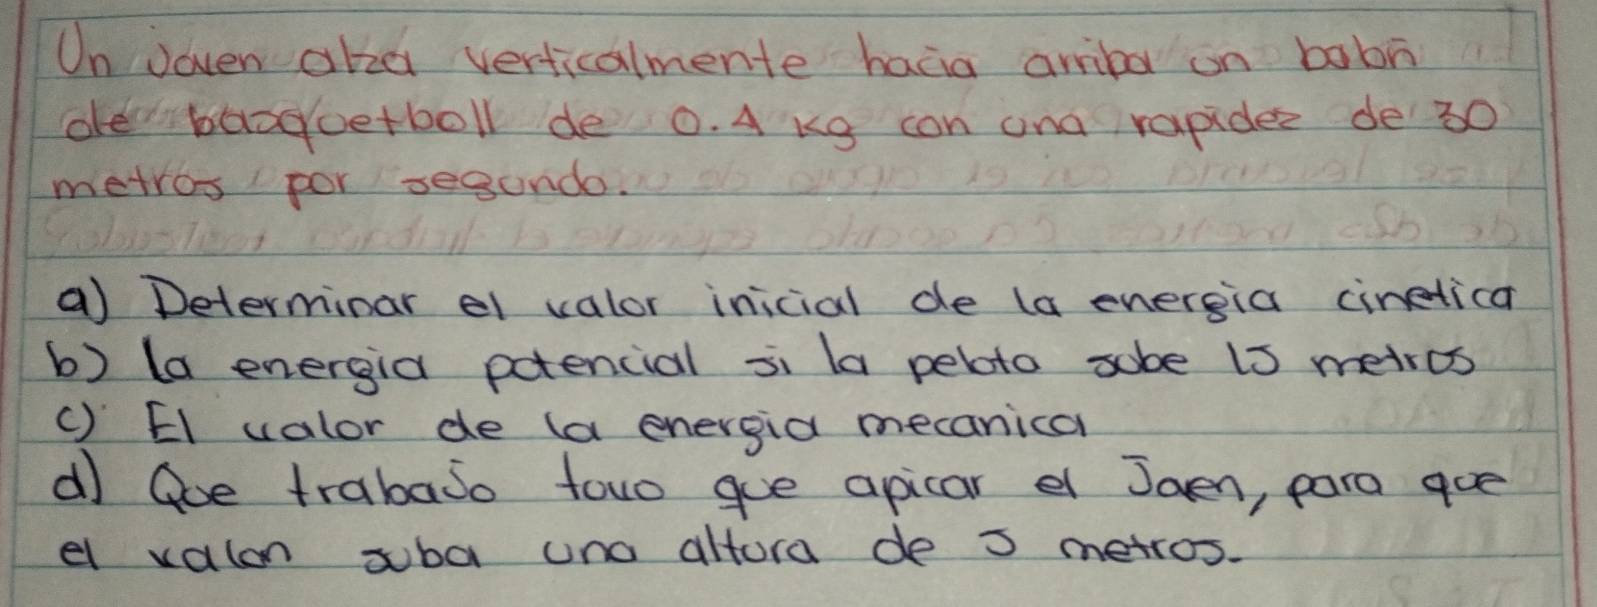 Un Joven alza verticalmente hacia arriba un balon
de basquetboll de 0.4 kg con una rapidez de 30
metros por segundo.
a) Determinar el valor inicial de la energia cinetica
b) la energia potencial si la pelota sube 15 metros
c) El valor de la energia mecanica
d) Que trabaJo tuvo que apicar el Joven, para que
el valon suba una altura de 5 metros.